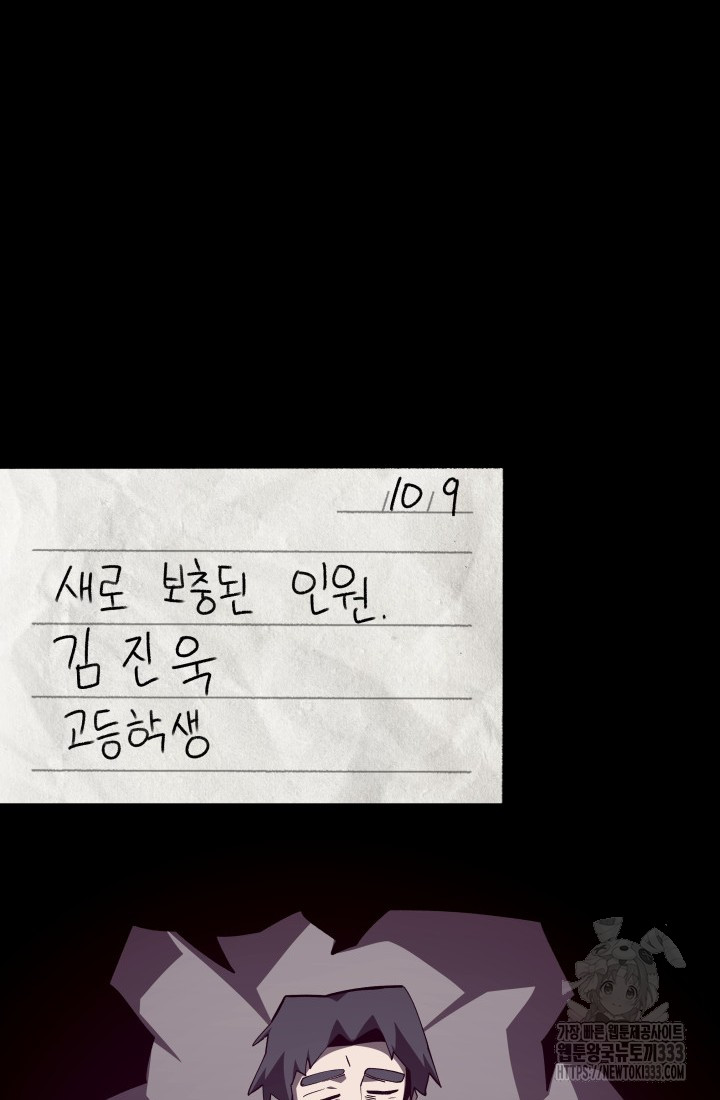 10/9
새로 보충된 인원.
김진욱
고등학생
가장 빠른 웹툰제공사이트
웹툰왕국뉴토끼333
HTTPS://NEWTOKI333.COM